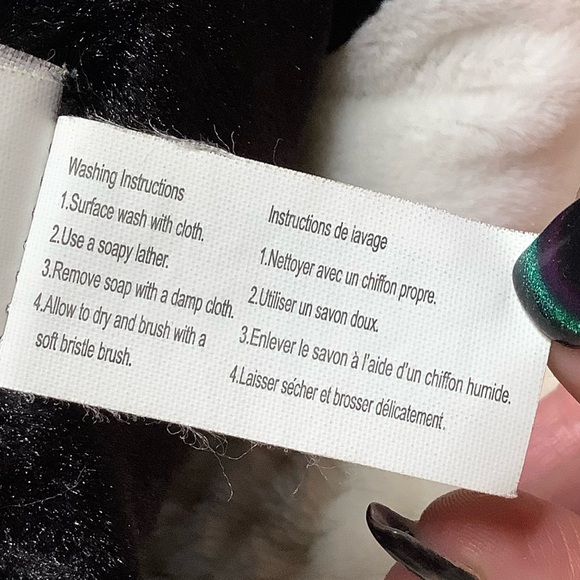 Washing Instructions
1.Surface wash with cloth.
2.Use a soapy lather.
3.Remove soap with a damp cloth.
4.Allow to dry and brush with a
soft bristle brush.
Instructions de iavage
1.Nettoyer avec un chiffon propre.
2.Utiliser un savon doux.
3.Enlever le savon à l'aide d'un chiffon humide.
4.Laisser sécher et brosser délicatement.